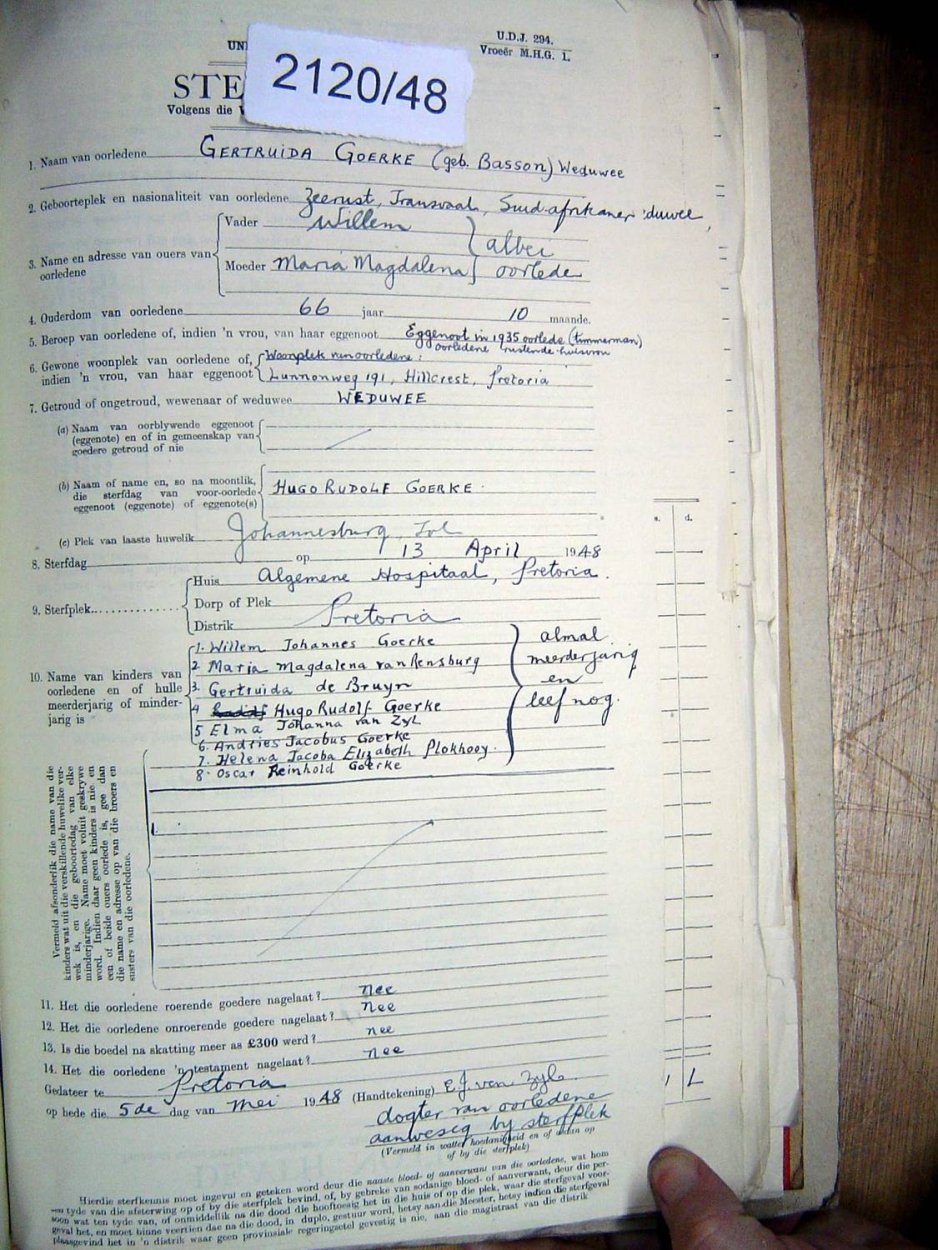 U.D.J. 294.
Vroeër M.H.G. I.
UN
2120/48
STE
Volgens die W
1. Naam van oorledene GERTRUIDA GOERKE (geb. Basson) Weduwee
2. Geboorteplek en nasionaliteit van oorledene Zeerust, Transvaal, Suid-afrikaner 'duwee
3. Name en adresse van ouers van oorledene
Vader Willem
Moeder Maria Magdalena
albei oorlede
4. Ouderdom van oorledene 66 jaar 10 maande.
5. Beroep van oorledene of, indien 'n vrou, van haar eggenoot Eggenoot in 1935 oorlede (timmerman)
oorledene rustende huisvrou
6. Gewone woonplek van oorledene of, indien 'n vrou, van haar eggenoot
Woonplek van oorledene:
Lunnonweg 191, Hillcrest, Pretoria
7. Getroud of ongetroud, wewenaar of weduwee WEDUWEE
(a) Naam van oorblywende eggenoot
(eggenote) en of in gemeenskap van
goedere getroud of nie
(b) Naam of name en, so na moontlik,
die sterfdag van voor-oorlede
eggenoot (eggenote) of eggenote(s)
HUGO RUDOLF GOERKE.
(c) Plek van laaste huwelik Johannesburg, Tvl
8. Sterfdag op 13 April 1948
9. Sterfplek
Huis Algemene Hospitaal, Pretoria.
Dorp of Plek
Distrik Pretoria
10. Name van kinders van
oorledene en of hulle
meerderjarig of minder-
jarig is
1. Willem Johannes Goerke
2 Maria Magdalena van Rensburg
3. Gertruida de Bruyn
4 Hugo Rudolf Goerke
5 Elma Johanna van Zyl
6. Andries Jacobus Goerke
7. Helena Jacoba Elizabeth Plokhooy.
8. Oscar Reinhold Goerke
almal
meerderjarig
en
leef nog.
s. d.
Vermeld afsonderlik die name van die
kinders wat uit die verskillende huwelike ver-
wek is, en die geboortedag van elke
minderjarige. Name moet voluit geskrywe
word. Indien daar geen kinders is nie, en
een of beide ouers oorlede is, gee dan
die name en adresse op van die broers en
susters van die oorledene.
11. Het die oorledene roerende goedere nagelaat? nee
12. Het die oorledene onroerende goedere nagelaat? nee
13. Is die boedel na skatting meer as £300 werd? nee
14. Het die oorledene 'n testament nagelaat? nee
Gedateer te Pretoria
op hede die 5de dag van Mei 1948 (Handtekening) E.J. van Zyl
dogter van oorledene
aanwesig by sterfplek
(Vermeld in watter hoedanigheid en of al dan op
of by die sterfplek)
Hierdie sterfkennis moet ingevul en geteken word deur die naaste bloed- of aanverwant van die oorledene, wat hom
ten tyde van die afsterwing op of by die sterfplek bevind, of, by gebreke van sodanige bloed- of aanverwant, deur die per-
soon wat ten tyde van, of onmiddellik na die dood die hooftoesig het in die huis of op die plek, waar die sterfgeval voor-
geval het, en moet binne veertien dae na die dood, in duplo, gestuur word, hetsy aan die Meester, hetsy indien die sterfgeval
plaasgevind het in 'n distrik waar geen provinsiale regeringsetel gevestig is nie, aan die magistraat van die distrik